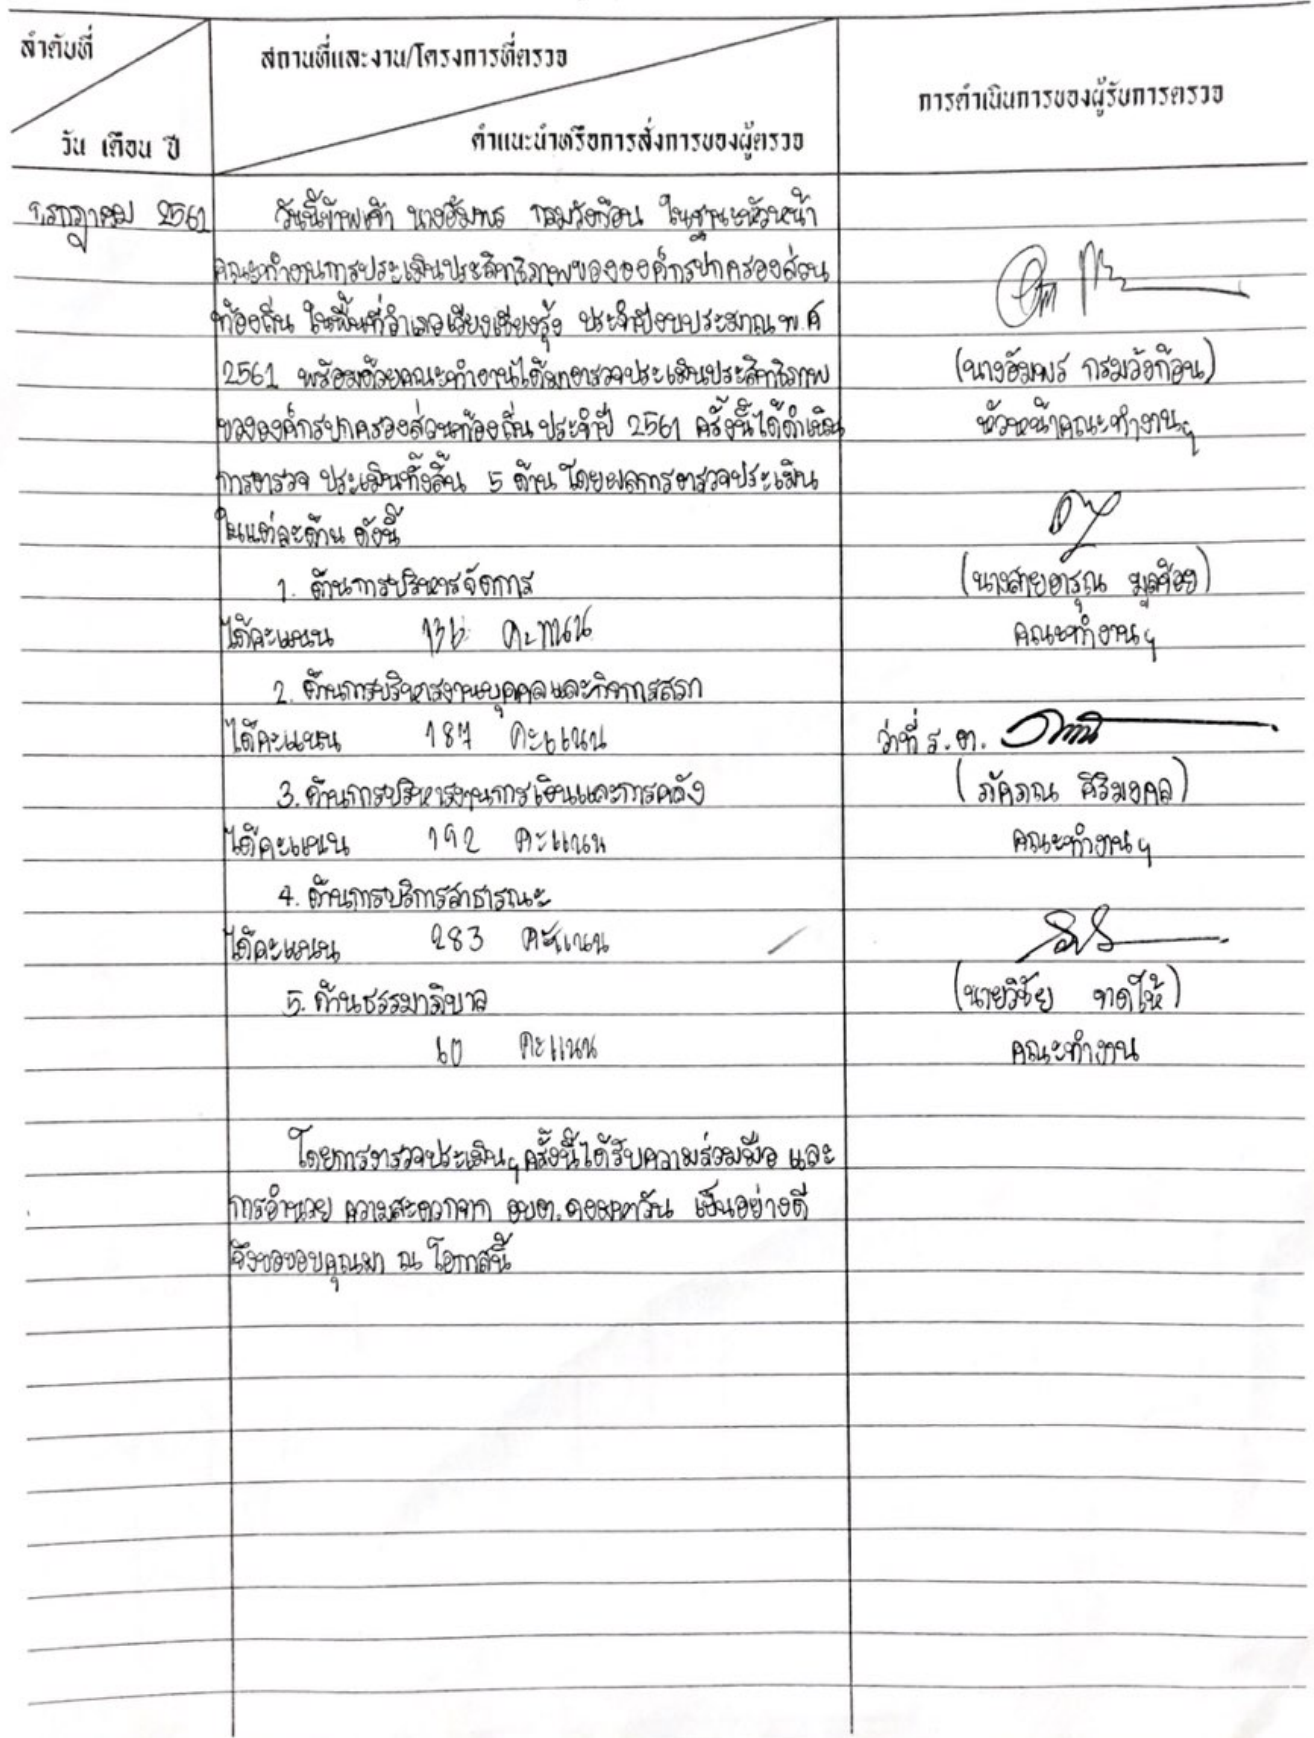 ลำดับที่
วัน เดือน ปี
สถานที่และงาน/โครงการที่ตรวจ
คำแนะนำหรือการสั่งการของผู้ตรวจ
การดำเนินการของผู้รับการตรวจ
กรกฎาคม 2561
วันนี้ข้าพเจ้า นางอัมพร กรมวังก้อน ในฐานะหัวหน้า
คณะทำงานการประเมินประสิทธิภาพขององค์กรปกครองส่วน
ท้องถิ่น ในพื้นที่อำเภอเวียงเชียงรุ้ง ประจำปีงบประมาณ พ.ศ
2561 พร้อมด้วยคณะทำงานได้มาตรวจประเมินประสิทธิภาพ
ขององค์กรปกครองส่วนท้องถิ่น ประจำปี 2561 ครั้งนี้ได้ดำเนิน
การตรวจ ประเมินทั้งสิ้น 5 ด้าน โดยผลการตรวจประเมิน
ในแต่ละด้าน ดังนี้
1. ด้านการบริหารจัดการ
ได้คะแนน คะแนน
2. ด้านการบริหารงานบุคคลและกิจการสภา
ได้คะแนน 187 คะแนน
3. ด้านการบริหารงานการเงินและการคลัง
ได้คะแนน 192 คะแนน
4. ด้านการบริการสาธารณะ
ได้คะแนน 283 คะแนน
5. ด้านธรรมาภิบาล
60 คะแนน
โดยการตรวจประเมินฯ ครั้งนี้ได้รับความร่วมมือ และ
การอำนวย ความสะดวกจาก อบต. เป็นอย่างดี
จึงขอขอบคุณมา ณ โอกาสนี้
(นางอัมพร กรมวังก้อน)
หัวหน้าคณะทำงานฯ
(นางสายอรุณ)
คณะทำงานฯ
ว่าที่ ร.ต.
(ภัคภณ ศิริมงคล)
คณะทำงานฯ
(นายวิชัย ขาดให้)
คณะทำงาน